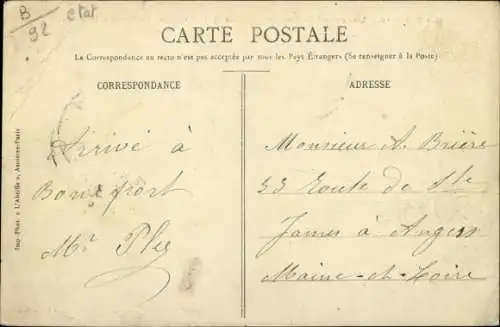 B
92
etat
CARTE POSTALE
La Correspondance au recto n'est pas acceptée par tous les Pays Étrangers (Se renseigner à la Poste)
CORRESPONDANCE
Arrivé à
Bon port
Mr
ADRESSE
Monsieur A. Brière
33 Route de Ste
James à Angers
Maine-et-Loire
Imp.-Phot. « L'Abeille », Asnières-Paris